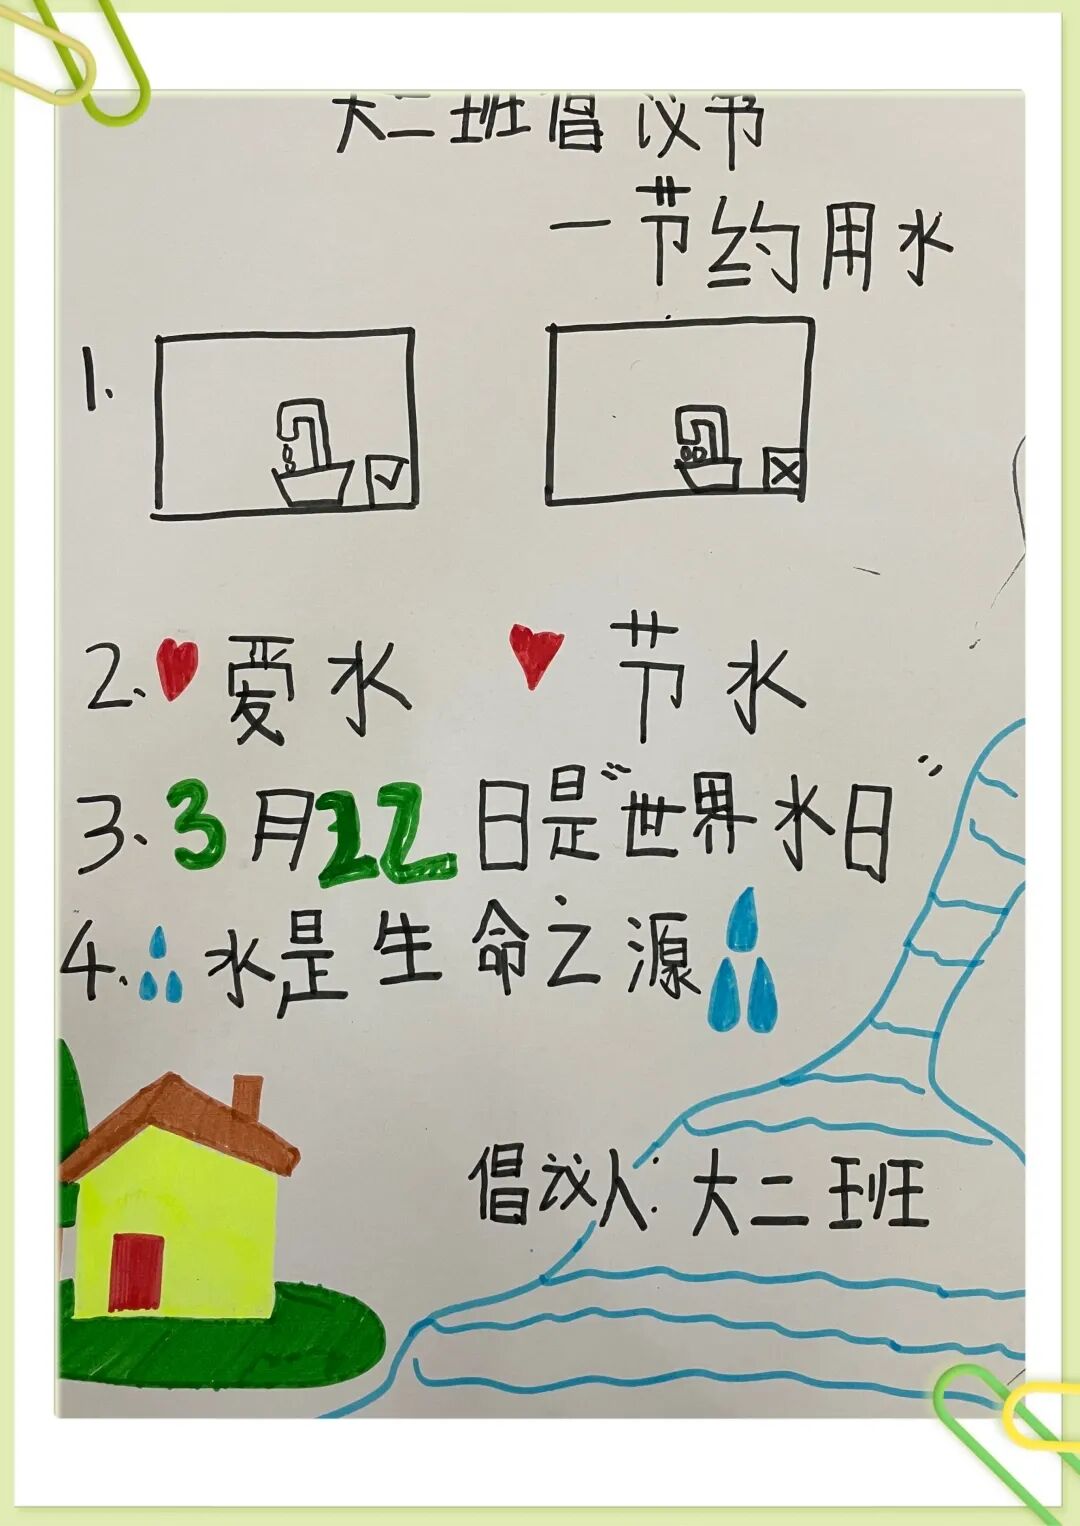 大二班倡议书
一节约用水
1.
2.爱水 节水
3.3月22日是"世界水日"
4.水是生命之源
倡议人:大二班